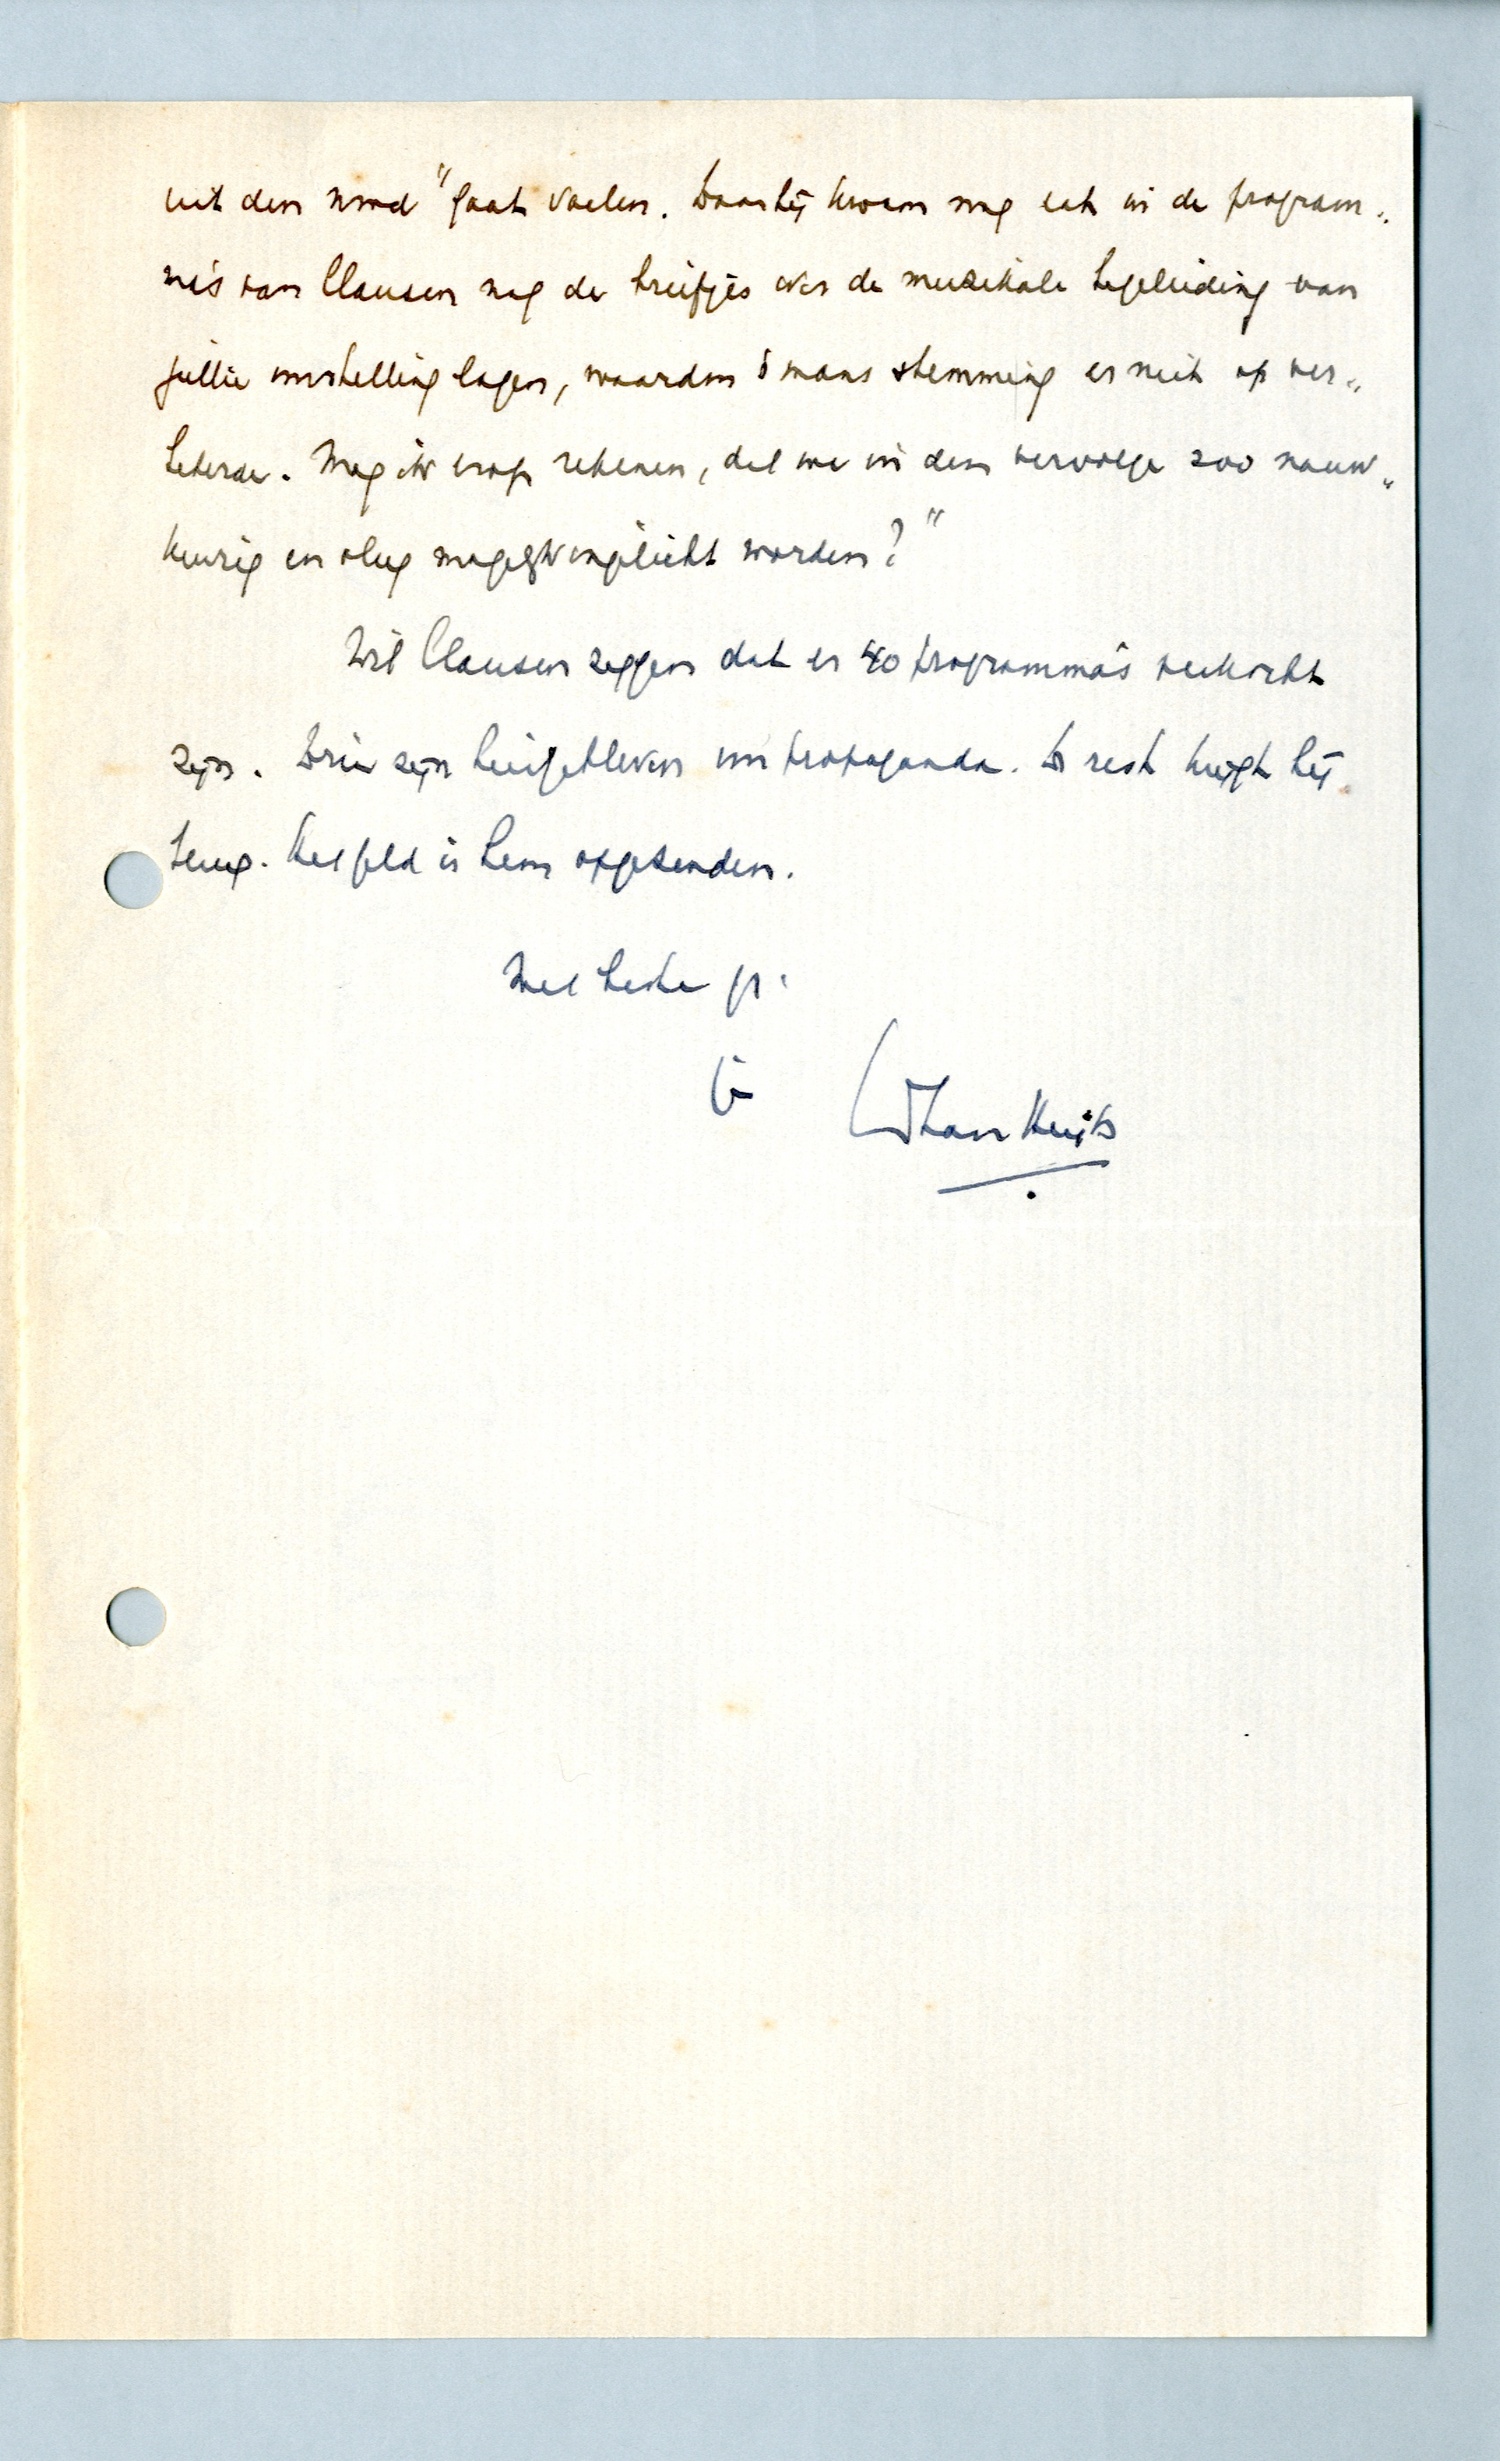 uit den nood" gaat voelen. Daarbij kwam nog dat in de program-
ma's van Clausen nog de briefjes over de muzikale begeleiding van
jullie voorstelling lagen, waardoor 's mans stemming er niet op ver-
beterde. Mag ik erop rekenen, dat we in den vervolge zoo nauw-
keurig en vlug mogelijk ingelicht worden?"
Wil Clausen zeggen dat er 40 programma's verkocht
zijn. Drie zijn hier gebleven om propaganda. De rest krijgt hij
terug. Het geld is hem opgezonden.
Met beste gr.